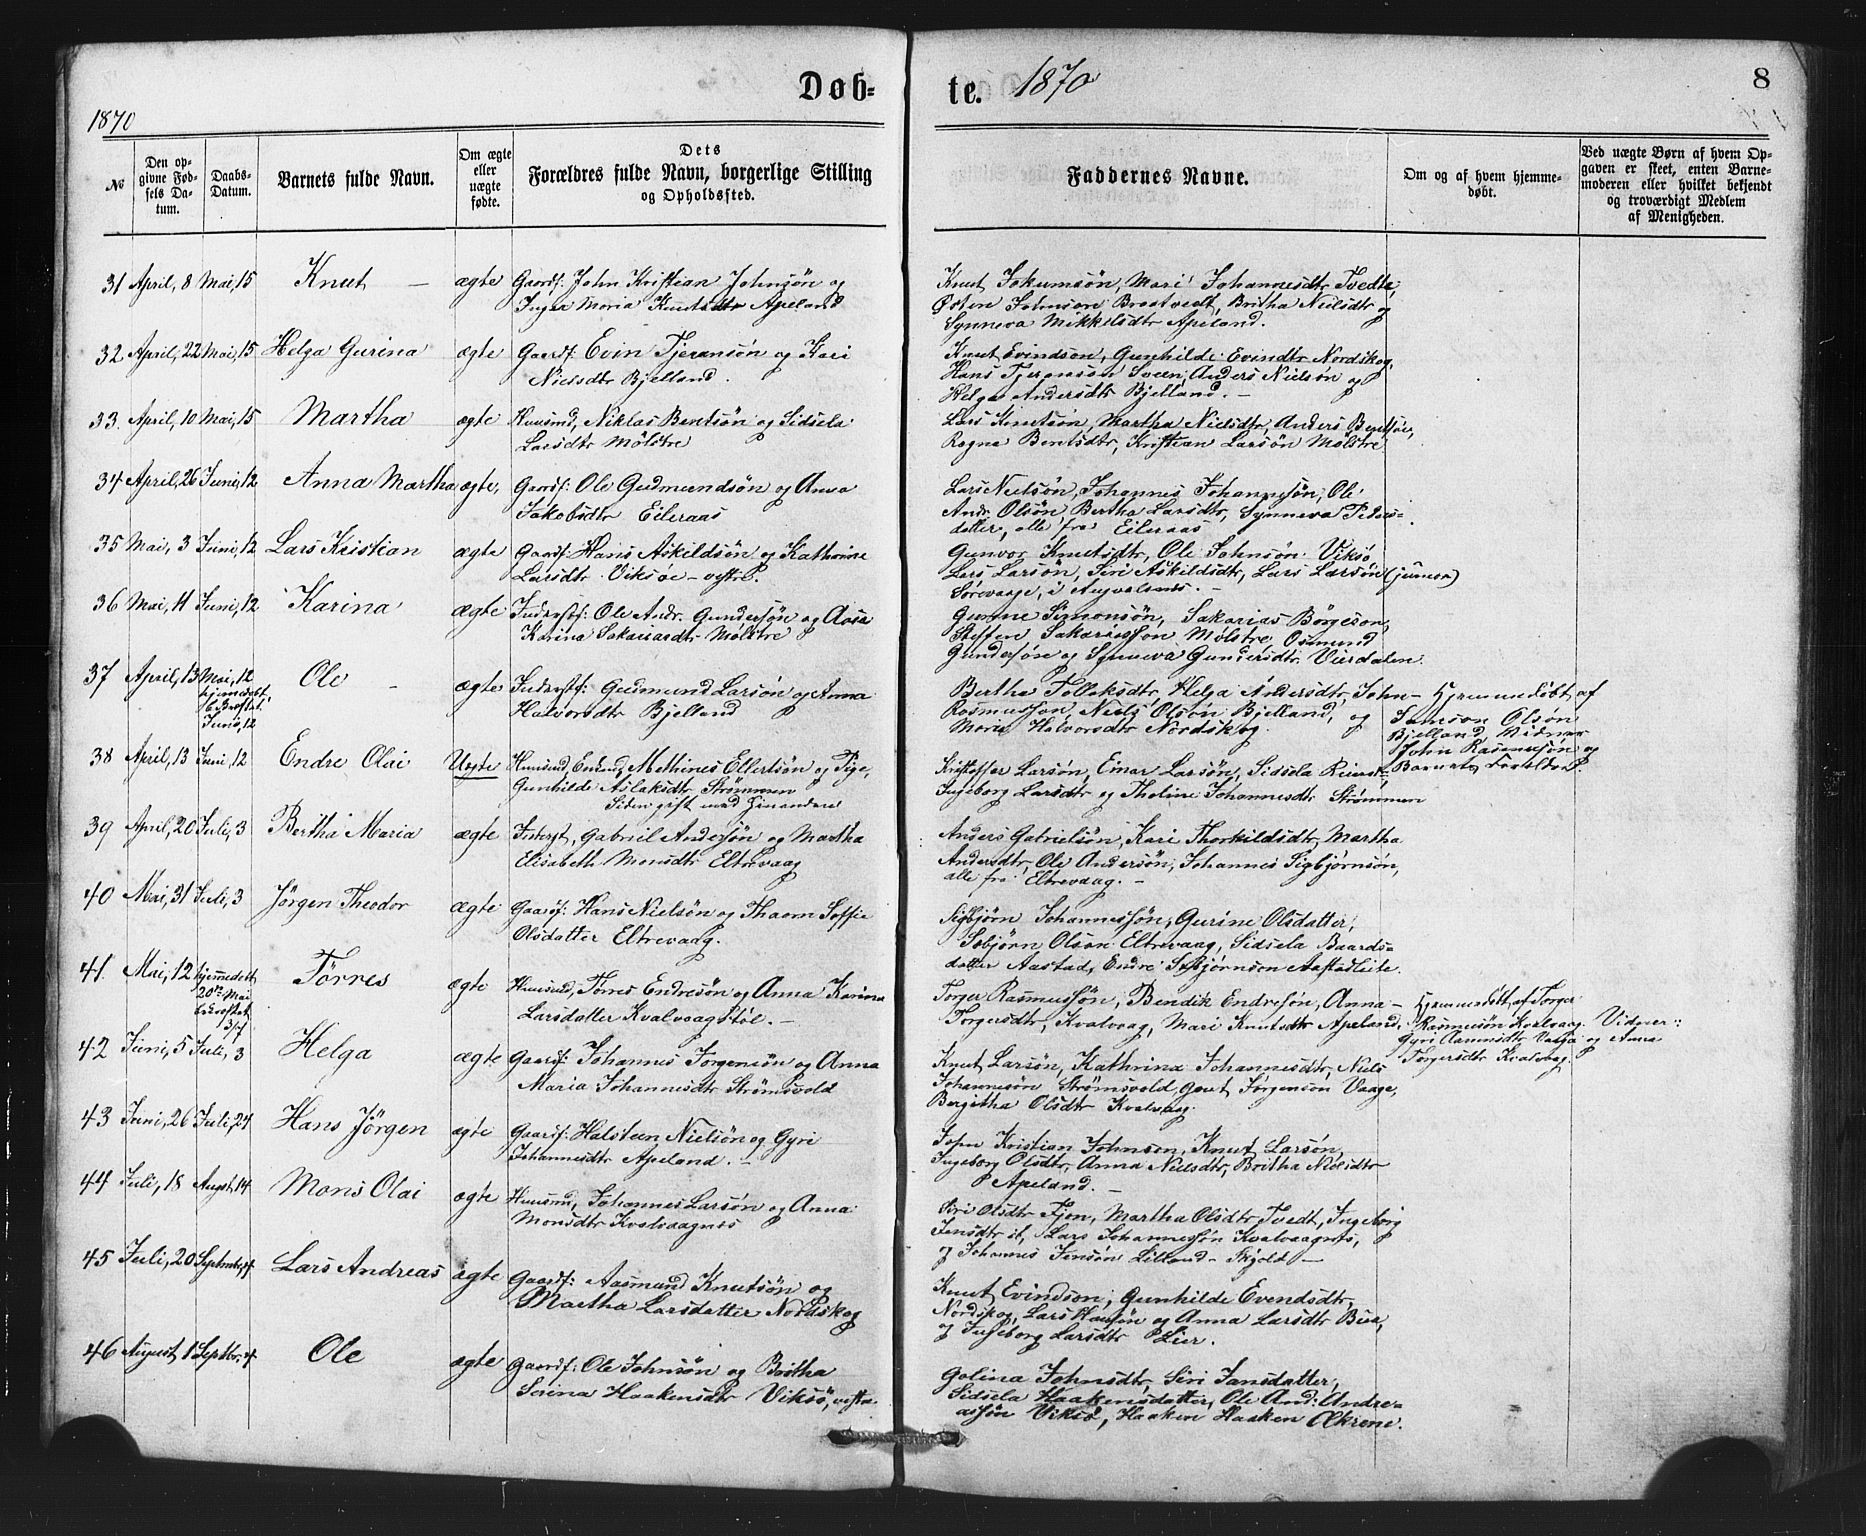 Døb-
te.
1870
8
1870
№
Den op-
givne Fød-
sels Da-
tum.
Daabs-
Datum.
Barnets fulde Navn.
Om ægte
eller
uægte
fødte.
Dets
Forældres fulde Navn, borgerlige Stilling
og Opholdssted.
Faddernes Navne.
Om og af hvem hjemme-
døbt.
Ved uægte Børn af hvem Op-
gaven er skeet, enten Barne-
moderen eller hvilket bekjendt
og troværdigt Medlem
af Menigheden.
31 April, 8 Mai, 15 Knut — ægte Gaardf: John Kristian Johnsøn og
Inger Maria Knutsdtr Apeland
Knut Jokumsøn, Mari Johannesdtr Tvedte,
Østen Johnson Brostvedt, Britha Nielsdtr og
Synneva Mikkelsdtr Apeland.
32 April, 22 Mai, 15 Helga Gurina ægte Gaardf. Evin Tjeransøn og Kari
Nielsdtr Bjelland.
Knut Evindsøn, Gunhilde Evindtr Nordskog,
Hans Tjeransøn Sveen, Anders Nielsøn og
Helga Andersdtr Bjelland. —
33. April, 10 Mai, 15 Martha ægte Huusmd, Niklas Bentsøn og Sidsela
Larsdtr Mölstre
Lars Knutsøn, Martha Nielsdtr, Anders Bentsøn,
Ragna Bentsdtr, Kristian Larsøn Mølstre
34 April, 26 Juni, 12 Anna Martha ægte, Gaardf: Ole Gudmundsøn og Anna
Jakobsdtr Eileraas
Lars Nielsøn, Johannes Johannesøn, Ole
Andr. Olsøn Bertha Larsdtr, Synneva Peders-
datter, alle fra Eileraas
35 Mai, 3 Juni, 12 Lars Kristian ægte Gaardf: Hans Askildsøn og Kathrine
Larsdtr Viksøe - vestre.
Gunvor Knutsdtr, Ole Johnsøn Viksø
Lars Larsøn, Siri Askildsdtr, Lars Larsøn (junior)
Sørevaage, i
36 Mai, 11 Juni, 12 Karina ægte Inderstf: Ole Andr. Gundersøn og Aasa
Karina Sakariasdtr Mølstre
Simonsøn, Sakarias Börgeson,
Steffen Sakariassøn Mölstre, Osmund
Gundersøn og Synneva Gundersdtr Vierdalen.
37 April, 13 Mai, 12
hjemmedøbt,
Juni, 12
Ole — ægte Inderstf: Gudmund Larsøn og Anna
Halvorsdtr Bjelland
Bertha Tollaksdtr, Helga Andersdtr, John
Rasmussøn, Niels Olsøn Bjelland, og
Maria Halvorsdtr Nordskog.
Hjemmedøbt af
Samson Olsøn
Bjelland, Vidner
John Rasmussøn og
Barnets Forældre.
38 April, 13 Juni, 12 Endre Olai Uægte Huusmd, Enkemd, Mathines Ellertsøn og Pige,
Gunhilde Aslaksdtr Strømmen
Siden gift med hinanden
Kristoffer Larsøn, Einar Larsøn, Sidsela
Ingeborg Larsdtr og Tholine Johannesdtr Strømmen
39 April, 20 Juli, 3 Bertha Maria ægte Inderst, Gabriel Andersøn og Martha
Elisabeth Monsdtr Eltrevaag
Anders Gabrielsøn, Kari Thorkildsdtr, Martha
Andersdtr, Ole Andersøn, Johannes Sigbjørnsøn,
alle fra Eltrevaag. —
40 Mai, 31 Juli, 3 Jörgen Theodor ægte Gaardf: Hans Nielsøn og Soffie
Olsdatter Eltrevaag.
Sigbjørn Johannessøn, Gurine Olsdatter,
Olson Eltrevaag, Sidsela Baards-
datter Aastad, Endre
41. Mai, 12 hjemmedøbt
20de Mai
3/7
Törres ægte Huusmd, Tørres Endresøn og Anna Karina
Larsdatter Kvalvaagstøl. —
Torger Rasmussøn, Bendik Endresøn, Anna
Torgersdtr, Kvalvaag, Mari Knutsdtr Apeland,
Hjemmedøbt, af Torger
Rasmusøn Kvalvaag. Vidner:
Gyri og Anna
Torgersdtr Kvalvaag.
42 Juni, 5 Juli, 3 Helga ægte Gaardf: Johannes Jorgensøn og Anna
Maria Johannesdtr Strømsvold
Knut Larsøn, Kathrina Johannesdtr, Niels
Johannesøn Strømsvold, Gaut Jørgensøn Vaage,
Bergitha Olsdtr Kvalvaag.
43 Juni, 26 Juli, 24 Hans Jörgen ægte Gaardf: Halsteen Nielsøn og Gyri
Johannesdtr Apeland. —
John Kristian Johnson, Knut Larsøn,
Ingeborg Olsdtr, Anna Nielsdtr, Britha Nielsdtr
Apeland. —
44 Juli, 18 August, 14 Mons Olai ægte Huusmd, Johannes Larsøn og Anna
Monsdtr Kvalvaagnes
Siri Olsdtr Tjøn, Martha Olsdtr Tvedt, Ingeborg
Jensdtr Lars Johannessøn Kvalvaagnes,
og Johannes Jensøn Lilland - Skjold —
45 Juli, 20 September, 4 Lars Andreas ægte Gaardf: Aasmund Knutsøn og
Martha Larsdatter Nordskog
Knut Evindson, Gunhilde Evendsdtr,
Nordskog, Lars Hansøn og Anna Larsdtr
og Ingeborg Larsdtr Lier.
46 August, Septbr, 4 Ole ægte Gaardf: Ole Johnsøn og Britha
Serina Haakensdtr Viksö, vestre
Golina Johnsdtr, Siri Jansdatter,
Sidsela Haakensdatter, Ole And: Andre-
assøn Viksö, Haaken Haaken Økrene.